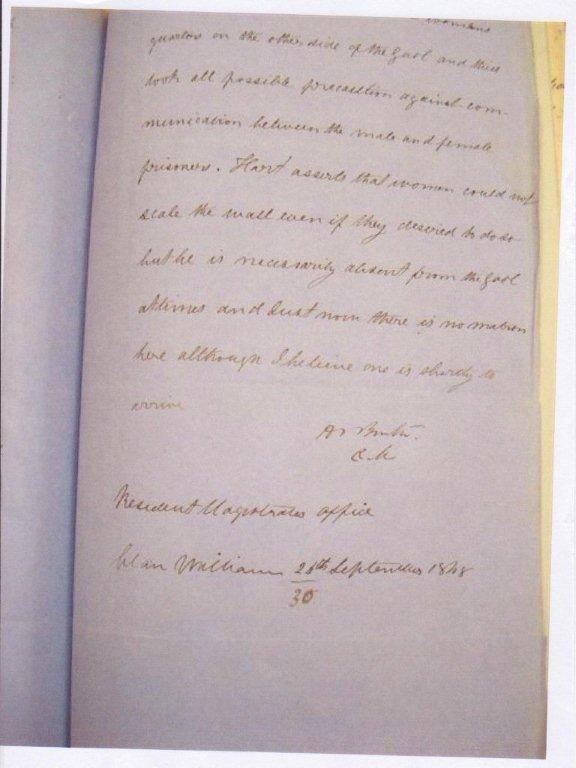 womans
quarters on the other side of the Gaol and thus
took all possible precaution against com-
munication between the male and female
prisoners. Hart asserts that women could not
scale the wall even if they desired to do so
but he is necessarily absent from the Gaol
at times and Just now there is no matron
here although I believe one is shortly to
arrive
Resident Magistrates Office
William 28th September 18
30